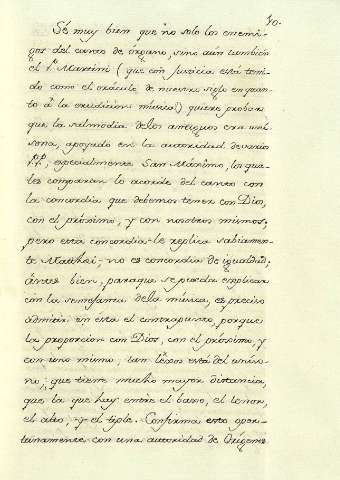 40.
Sé muy bien que no solo los enemi-
gos del canto de órgano, sino aún tambien
el P. Martini (que con justicia está teni-
do como el oráculo de nuestro siglo en quan-
to á la erudicion música) quiere probar
que la salmodia delos antiguos era uni-
sona, apoyado en la autoridad de varios
PP, especialmente San Máximo, los qua-
les comparan lo acorde del canto con
la concordia que debemos tener con Dios,
con el próximo, y con nosotros mismos;
pero esta concordia-le replica sabiamen-
te Matthei-no es concordia de igualdad;
ántes bien, paraque se pueda explicar
con la semejansa dela música, es preciso
admitir en ésta el contrapunto, porque
la proporcion con Dios, con el próximo, y
con uno mismo, tan léxos está del uníso-
no, que tiene mucho mayor distancia,
que la que hay entre el baxo, el tenor,
el alto, y el tiple. Confirma esto opor-
tunamente con una autoridad de Orígenes